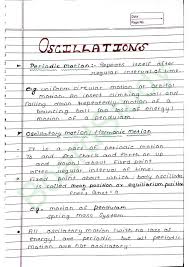 Date
Page No.
OSCILLATIONS
Periodic Motion:- Repeats itself after
regular interval of time.
e.g. uniform circular motion or orbital
motion. An insect climbing wall and
falling down repeatedly. motion of a
bouncing ball (no lost of energy)
motion of a pendulum
Oscillatory motion / Harmonic motion
It is a part of periodic motion
To and fro (back and forth or up
and down) about a fixed point
after regular interval of time.
Fixed point about which body oscillates
is called mean position or equilibrium position
e.g. motion of pendulum
spring mass system
All oscillatory motion (with no loss of
energy) are periodic but all periodic
motion are not oscillatory.